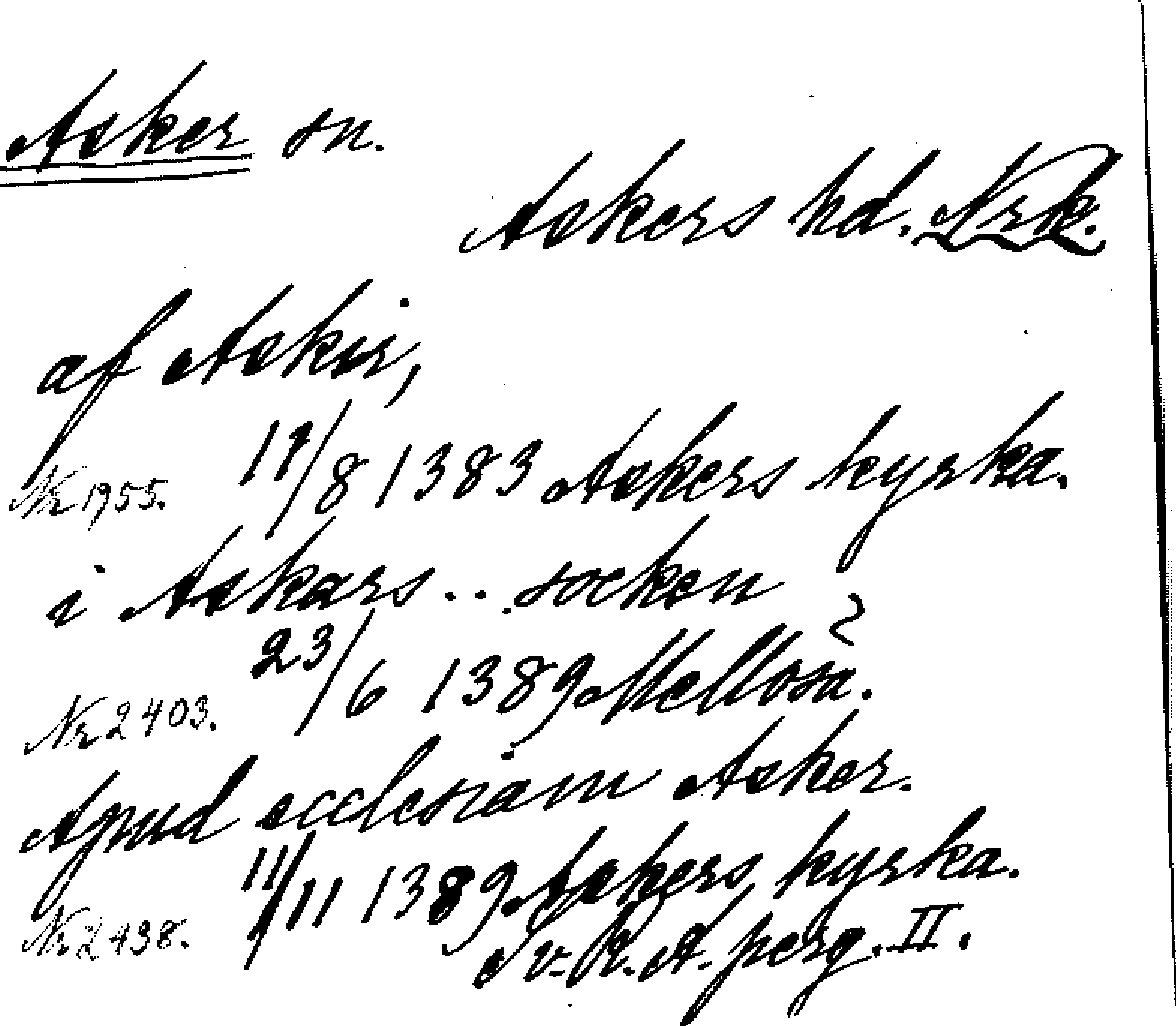 Asker sn.
Askers hd. Nrk.
af Askir,
Nr 1955. 17/8 1383 Askers kyrka.
i Askars.. socken
Nr 2403. 23/6 1389 Mellösa.
Apud ecclesiam Asker.
Nr 2438. 11/11 1389 Askers kyrka.
Sv. R. A. perg. II.